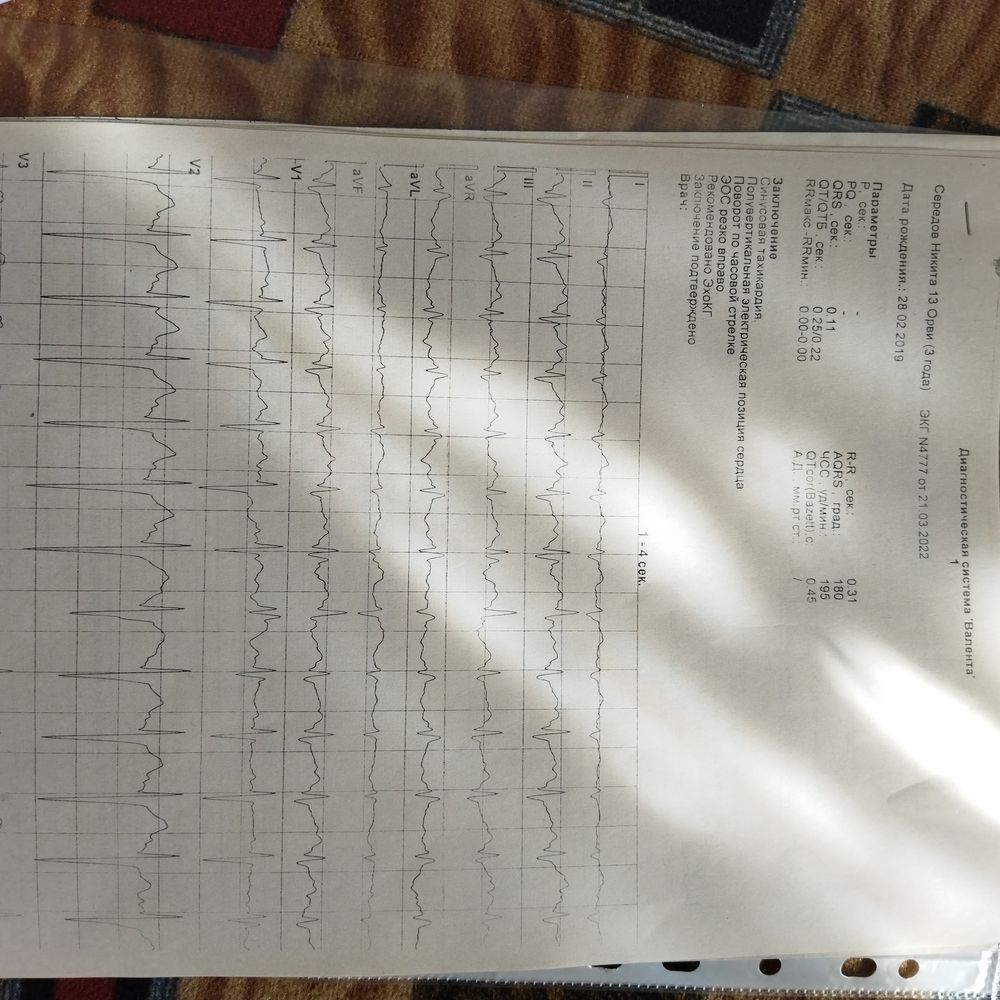 Диагностическая система 'Валента'
1
Середов Никита 13 Орви (3 года) ЭКГ N4777 от 21.03.2022
Дата рождения.: 28 02 2019
Параметры
P, сек.: R-R, сек.: 0 31
PQ, сек.: - AQRS, град.: 180
QRS, сек.: 0.11 ЧСС, уд/мин.: 195
QT/QTБ, сек.: 0.25/0.22 QTcor(Bazett),с: 0.45
RRмакс.-RRмин.: 0.00-0.00 АД, мм.рт.ст.: /
Заключение
Синусовая тахикардия
Полувертикальная электрическая позиция сердца
Поворот по часовой стрелке
ЭОС резко вправо.
Рекомендовано ЭхоКГ
Заключение подтверждено
Врач:
1 - 4 сек.
I
II
III
aVR
aVL
aVF
V1
V2
V3